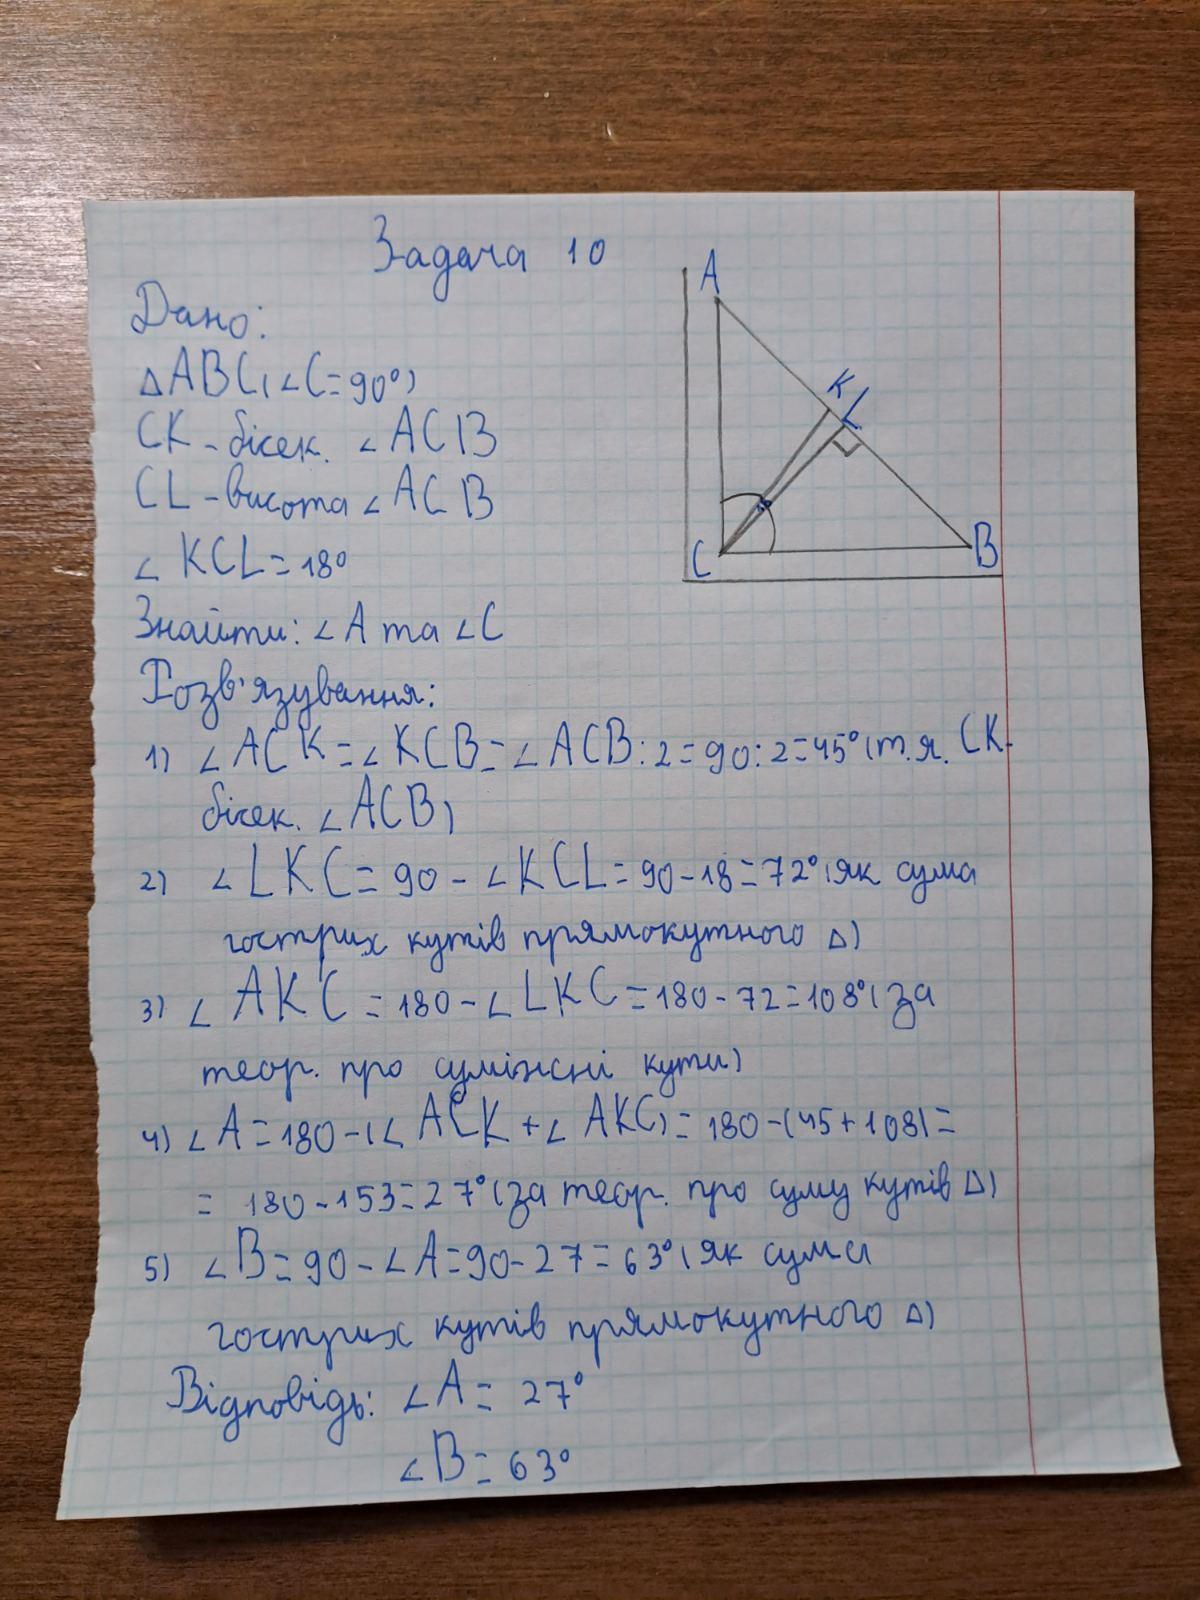 Задача 10
Дано:
△ABC(∠C=90°)
CK-бісек. ∠ACB
CL-висота ∠ACB
∠KCL=18°
Знайти: ∠A та ∠C
Розв'язування:
1) ∠ACK=∠KCB=∠ACB:2=90:2=45°(т.я. CK-
бісек. ∠ACB)
2) ∠LKC=90-∠KCL=90-18=72°(як сума
гострих кутів прямокутного △)
3) ∠AKC=180-∠LKC=180-72=108°(за
теор. про суміжні кути)
4) ∠A=180-(∠ACK+∠AKC)=180-(45+108)=
=180-153=27°(за теор. про суму кутів △)
5) ∠B=90-∠A=90-27=63°(як сума
гострих кутів прямокутного △)
Відповідь: ∠A=27°
∠B=63°
A
K
L
C
B